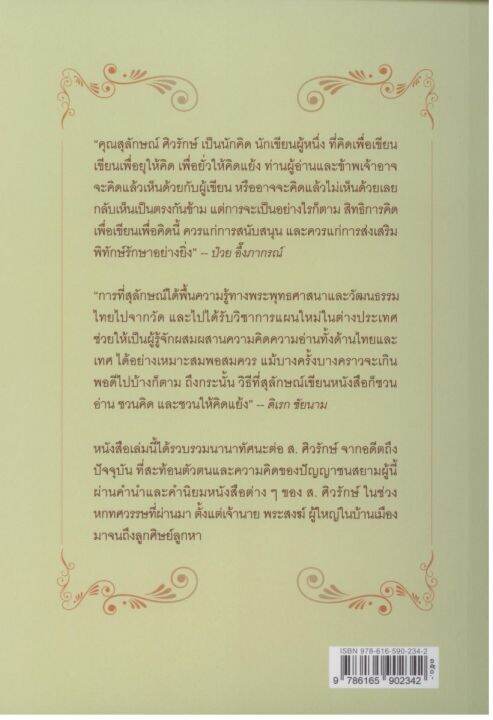 “คุณสุลักษณ์ ศิวรักษ์ เป็นนักคิด นักเขียนผู้หนึ่ง ที่คิดเพื่อเขียน
เขียนเพื่อยุให้คิด เพื่อยั่วให้คิดแย้ง ท่านผู้อ่านและข้าพเจ้าอาจ
จะคิดแล้วเห็นด้วยกับผู้เขียน หรืออาจจะคิดแล้วไม่เห็นด้วยเลย
กลับเห็นเป็นตรงกันข้าม แต่การจะเป็นอย่างไรก็ตาม สิทธิการคิด
เพื่อเขียนเพื่อคิดนี้ ควรแก่การสนับสนุน และควรแก่การส่งเสริม
พิทักษ์รักษาอย่างยิ่ง” -- ป๋วย อึ๊งภากรณ์
“การที่สุลักษณ์ได้พื้นความรู้ทางพระพุทธศาสนาและวัฒนธรรม
ไทยไปจากวัด และไปได้รับวิชาการแผนใหม่ในต่างประเทศ
ช่วยให้เป็นผู้รู้จักผสมผสานความคิดความอ่านทั้งด้านไทยและ
เทศ ได้อย่างเหมาะสมพอสมควร แม้บางครั้งบางคราวจะเกิน
พอดีไปบ้างก็ตาม ถึงกระนั้น วิธีที่สุลักษณ์เขียนหนังสือก็ชวน
อ่าน ชวนคิด และชวนให้คิดแย้ง” -- ดิเรก ชัยนาม
หนังสือเล่มนี้ได้รวบรวมนานาทัศนะต่อ ส. ศิวรักษ์ จากอดีตถึง
ปัจจุบัน ที่สะท้อนตัวตนและความคิดของปัญญาชนสยามผู้นี้
ผ่านคำนำและคำนิยมหนังสือต่าง ๆ ของ ส. ศิวรักษ์ ในช่วง
หกทศวรรษที่ผ่านมา ตั้งแต่เจ้านาย พระสงฆ์ ผู้ใหญ่ในบ้านเมือง
มาจนถึงลูกศิษย์ลูกหา
ISBN 978-616-590-234-2
9 786165 902342